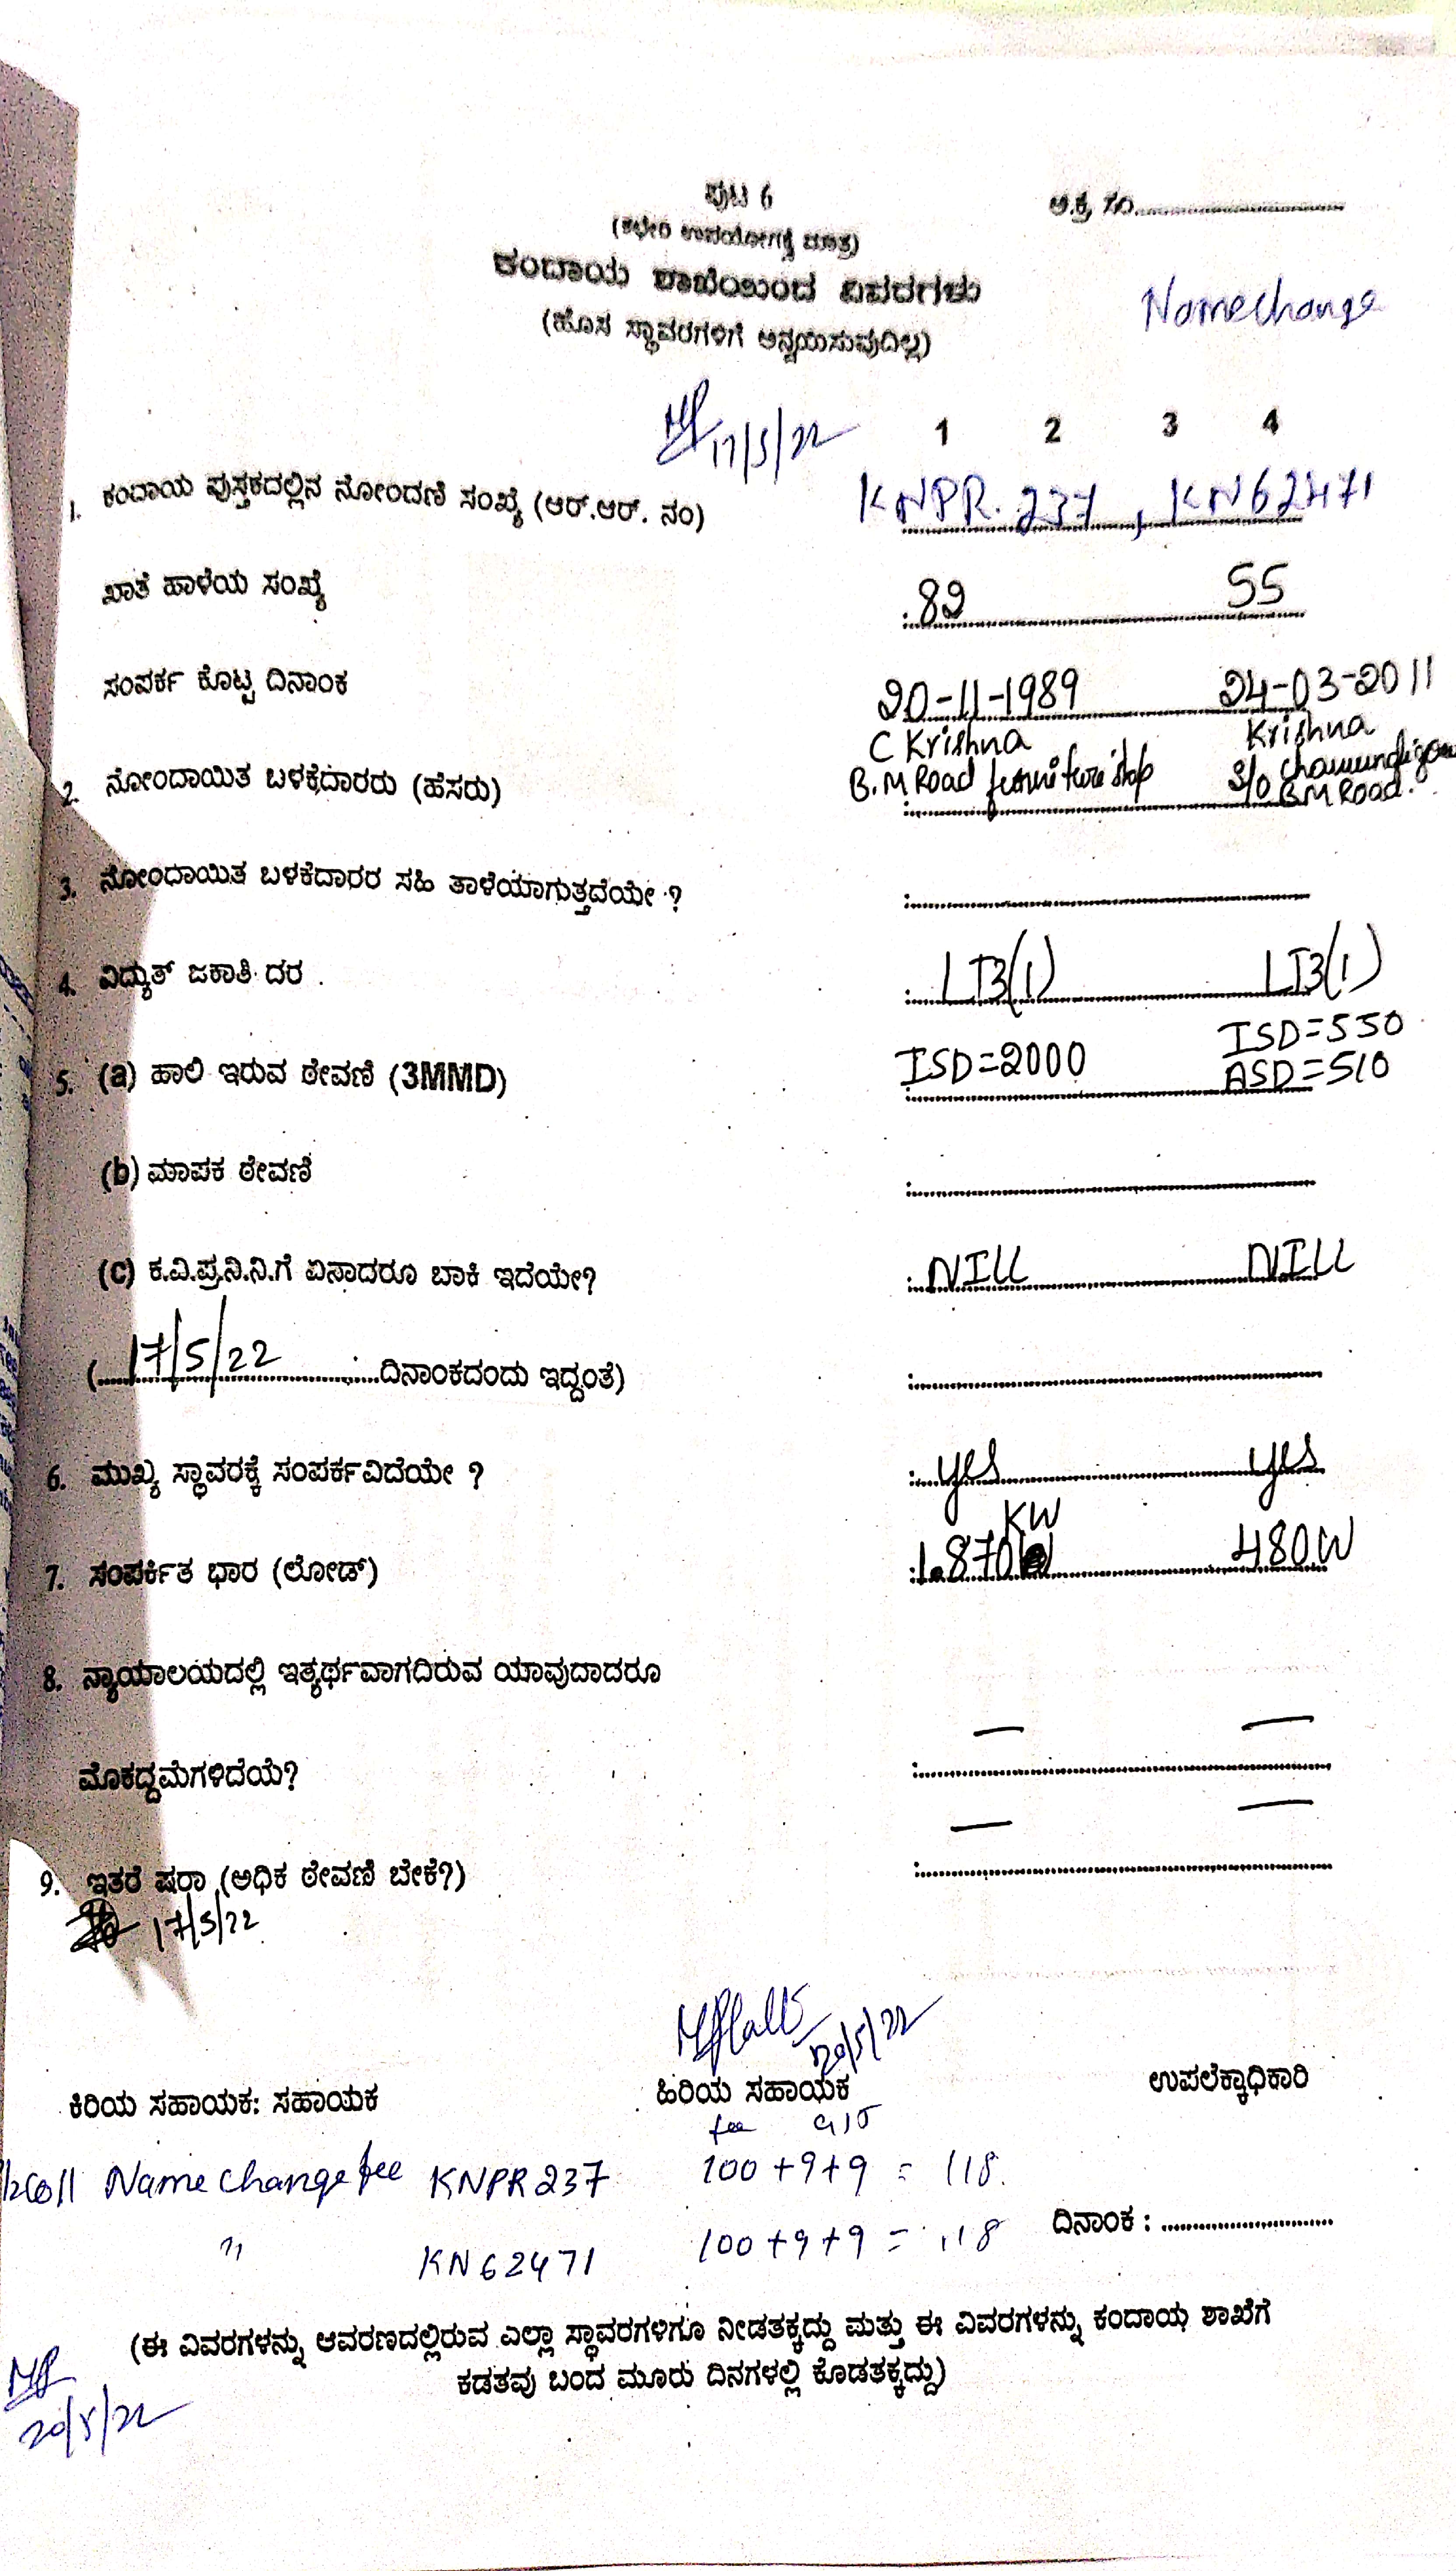 ಪುಟ 6
ಅ.ಕ್ರ. ಸಂ..............................
(ಕಛೇರಿ ಉಪಯೋಗಕ್ಕೆ ಮಾತ್ರ)
ಕಂದಾಯ ಶಾಖೆಯಿಂದ ವಿವರಗಳು
(ಹೊಸ ಸ್ಥಾವರಗಳಿಗೆ ಅನ್ವಯಿಸುವುದಿಲ್ಲ)
Name Change
17/5/22
1 2 3 4
1. ಕಂದಾಯ ಪುಸ್ತಕದಲ್ಲಿನ ನೋಂದಣಿ ಸಂಖ್ಯೆ (ಆರ್.ಆರ್. ನಂ) KNPR. 237, KN62471
ಖಾತೆ ಹಾಳೆಯ ಸಂಖ್ಯೆ : 89 55
ಸಂಪರ್ಕ ಕೊಟ್ಟ ದಿನಾಂಕ 20-11-1989 24-03-2011
2. ನೋಂದಾಯಿತ ಬಳಕೆದಾರರು (ಹೆಸರು) C Krishna Krishna
B.M Road furniture shop S/o
B M Road.
3. ನೋಂದಾಯಿತ ಬಳಕೆದಾರರ ಸಹಿ ತಾಳೆಯಾಗುತ್ತದೆಯೇ ? :
4. ವಿದ್ಯುತ್ ಜಕಾತಿ ದರ . : LT3(1) LT3(1)
5. (a) ಹಾಲಿ ಇರುವ ಠೇವಣಿ (3MMD) ISD=2000 ISD=550
ASD=510
(b) ಮಾಪಕ ಠೇವಣಿ :
(c) ಕ.ವಿ.ಪ್ರ.ನಿ.ನಿ.ಗೆ ಏನಾದರೂ ಬಾಕಿ ಇದೆಯೇ? : NILL NILL
(...17/5/22...ದಿನಾಂಕದಂದು ಇದ್ದಂತೆ) :
6. ಮುಖ್ಯ ಸ್ಥಾವರಕ್ಕೆ ಸಂಪರ್ಕವಿದೆಯೇ ? : yes yes
7. ಸಂಪರ್ಕಿತ ಭಾರ (ಲೋಡ್) : 1.870 KW 480W
8. ನ್ಯಾಯಾಲಯದಲ್ಲಿ ಇತ್ಯರ್ಥವಾಗದಿರುವ ಯಾವುದಾದರೂ
ಮೊಕದ್ದಮೆಗಳಿದೆಯೆ? : — —
9. ಇತರೆ ಷರಾ (ಅಧಿಕ ಠೇವಣಿ ಬೇಕೆ?) : — —
17/5/22
20/5/22
ಕಿರಿಯ ಸಹಾಯಕ: ಸಹಾಯಕ ಹಿರಿಯ ಸಹಾಯಕ ಉಪಲೆಕ್ಕಾಧಿಕಾರಿ
fee
Name change fee KNPR 237 100 + 9 + 9 = 118.
" KN62471 100 + 9 + 9 = 118
ದಿನಾಂಕ : ..............................
(ಈ ವಿವರಗಳನ್ನು ಆವರಣದಲ್ಲಿರುವ ಎಲ್ಲಾ ಸ್ಥಾವರಗಳಿಗೂ ನೀಡತಕ್ಕದ್ದು ಮತ್ತು ಈ ವಿವರಗಳನ್ನು ಕಂದಾಯ ಶಾಖೆಗೆ
ಕಡತವು ಬಂದ ಮೂರು ದಿನಗಳಲ್ಲಿ ಕೊಡತಕ್ಕದ್ದು)
20/5/22